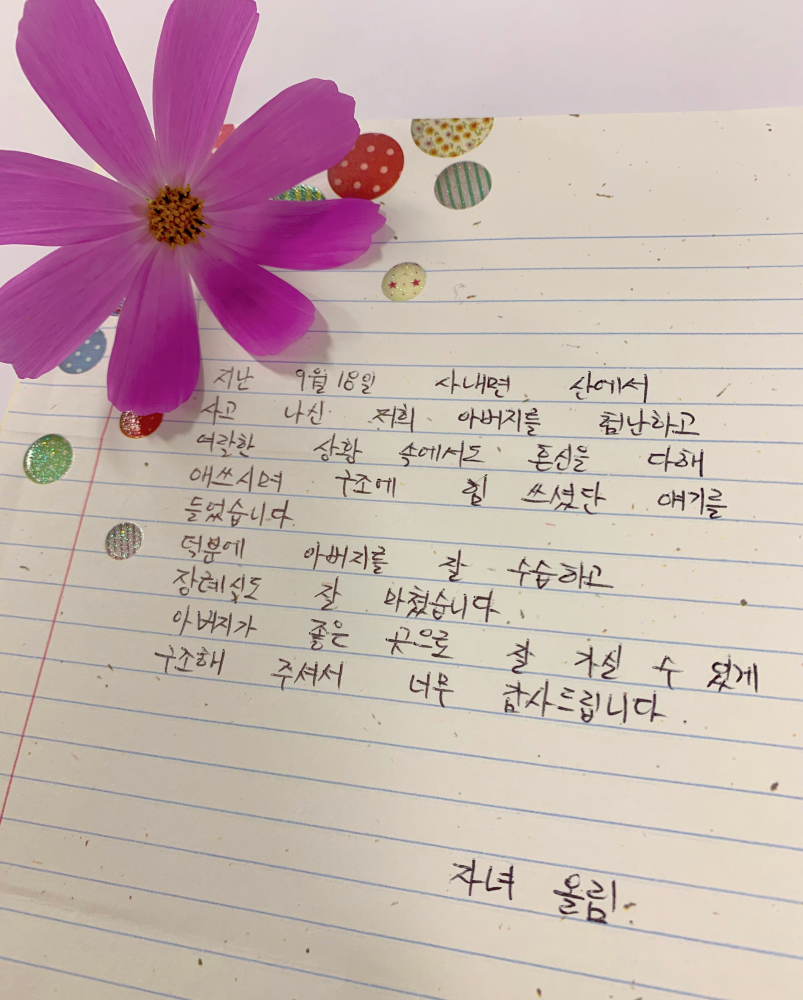 지난 9월 18일 사내면 산에서
사고 나신 저희 아버지를 험난하고
열악한 상황 속에서도 혼신을 다해
애쓰시며 구조에 힘 쓰셨단 얘기를
들었습니다.
덕분에 아버지를 잘 수습하고
장례식도 잘 마쳤습니다.
아버지가 좋은 곳으로 잘 가실 수 있게
구조해 주셔서 너무 감사드립니다.
자녀 올림.